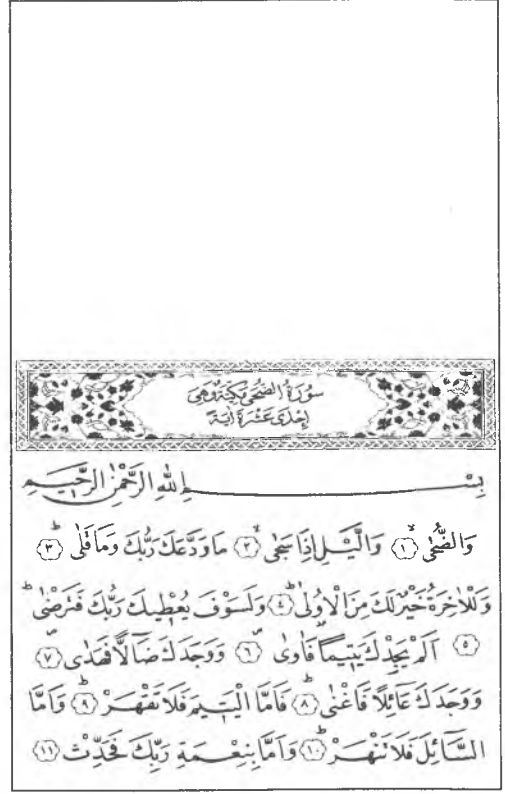 سُورَةُ الضُّحٰى مَكِّيَّةٌ وَهِيَ
اِحْدٰى عَشْرَةَ اٰيَةً
بِسْمِ اللهِ الرَّحْمٰنِ الرَّحِيمِ
وَالضُّحٰىۙ ﴿١﴾ وَالَّيْلِ اِذَا سَجٰىۙ ﴿٢﴾ مَا وَدَّعَكَ رَبُّكَ وَمَا قَلٰىؕ ﴿٣﴾
وَلَلْاٰخِرَةُ خَيْرٌ لَكَ مِنَ الْاُولٰىؕ ﴿٤﴾ وَلَسَوْفَ يُعْطٖيكَ رَبُّكَ فَتَرْضٰىؕ
﴿٥﴾ اَلَمْ يَجِدْكَ يَتٖيمًا فَاٰوٰىࣕ ﴿٦﴾ وَوَجَدَكَ ضَٓالًّا فَهَدٰىࣕ ﴿٧﴾
وَوَجَدَكَ عَٓائِلًا فَاَغْنٰىؕ ﴿٨﴾ فَاَمَّا الْيَتٖيمَ فَلَا تَقْهَرْؕ ﴿٩﴾ وَاَمَّا
السَّٓائِلَ فَلَا تَنْهَرْؕ ﴿١٠﴾ وَاَمَّا بِنِعْمَةِ رَبِّكَ فَحَدِّثْ ﴿١١﴾